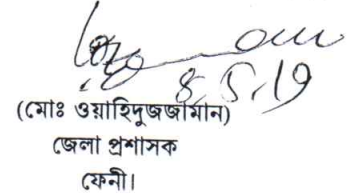 8.5.19
(মোঃ ওয়াহিদুজজামান)
জেলা প্রশাসক
ফেনী।